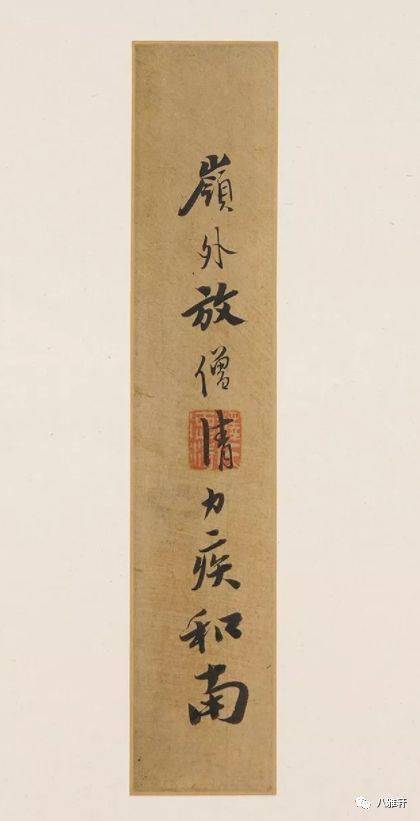 嶺外放僧清力疾和南
八雅轩